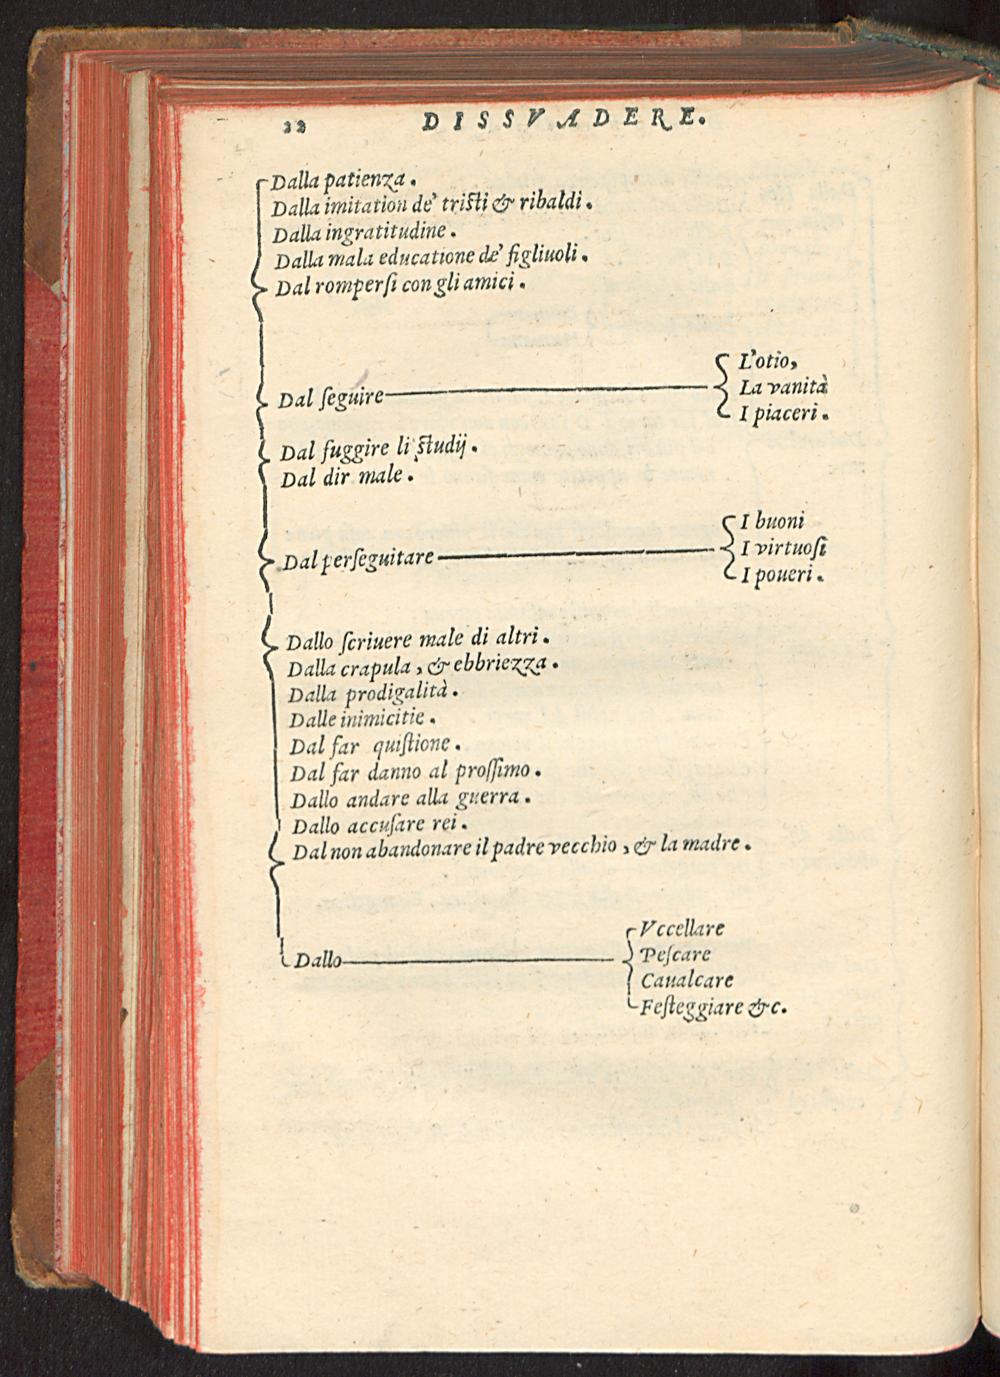 22 DISSVADERE.
Dalla patienza.
Dalla imitation de' tristi & ribaldi.
Dalla ingratitudine.
Dalla mala educatione de' figliuoli.
Dal rompersi con gli amici.
L'otio,
Dal seguire La vanità
I piaceri.
Dal fuggire li studij.
Dal dir male.
I buoni
Dal perseguitare I virtuosi
I poueri.
Dallo scriuere male di altri.
Dalla crapula, & ebbriezza.
Dalla prodigalità.
Dalle inimicitie.
Dal far quistione.
Dal far danno al prossimo.
Dallo andare alla guerra.
Dallo accusare rei.
Dal non abandonare il padre vecchio, & la madre.
Vccellare
Dallo Pescare
Caualcare
Festeggiare &c.